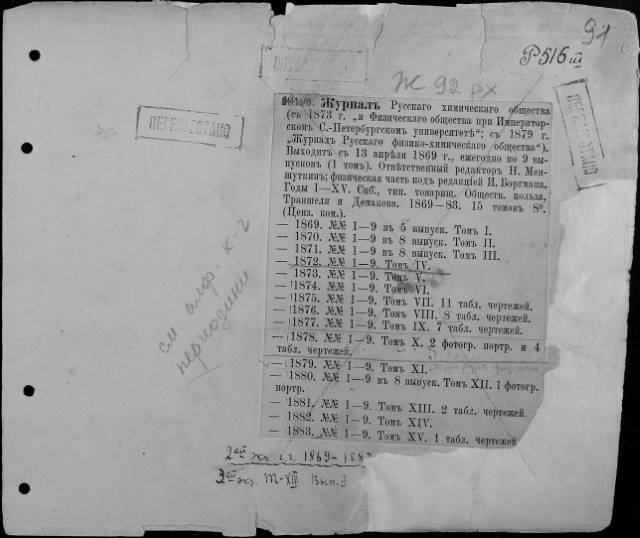 91
Р516 III
Ж 92 рх
ПЕРЕРАБОТАНО
ПЕРЕРАБОТАНО
Журналъ Русскаго химическаго общества
(съ 1873 г. „и Физическаго общества при Император-
скомъ С.-Петербургскомъ университетѣ“; съ 1879 г.
„Журналъ Русскаго физико-химическаго общества“).
Выходитъ съ 13 апрѣля 1869 г., ежегодно по 9 вы-
пусковъ (1 томъ). Отвѣтственный редакторъ Н. Мен-
шуткинъ; физическая часть подъ редакціей И. Боргмана.
Годы I—XV. Спб., тип. товарищ. Обществ. польза,
Траншеля и Демакова. 1869—83. 15 томовъ 8º.
(Ценз. ком.).
— 1869. №№ 1—9 въ 5 выпуск. Томъ I.
— 1870. №№ 1—9 въ 8 выпуск. Томъ II.
— 1871. №№ 1—9 въ 8 выпуск. Томъ III.
— 1872. №№ 1—9. Томъ IV.
— 1873. №№ 1—9. Томъ V.
— 1874. №№ 1—9. Томъ VI.
— 1875. №№ 1—9. Томъ VII. 11 табл. чертежей.
— 1876. №№ 1—9. Томъ VIII. 8 табл. чертежей.
— 1877. №№ 1—9. Томъ IX. 7 табл. чертежей.
— 1878. №№ 1—9. Томъ X. 2 фотогр. портр. и 4
табл. чертежей.
— 1879. №№ 1—9. Томъ XI.
— 1880. №№ 1—9 въ 8 выпуск. Томъ XII. 1 фотогр.
портр.
— 1881. №№ 1—9. Томъ XIII. 2 табл. чертежей.
— 1882. №№ 1—9. Томъ XIV.
— 1883. №№ 1—9. Томъ XV. 1 табл. чертежей
см. алф. к-г
периодики
2ой экз. г.г. 1869–188
2ой экз. Т-XIII Вып. 9